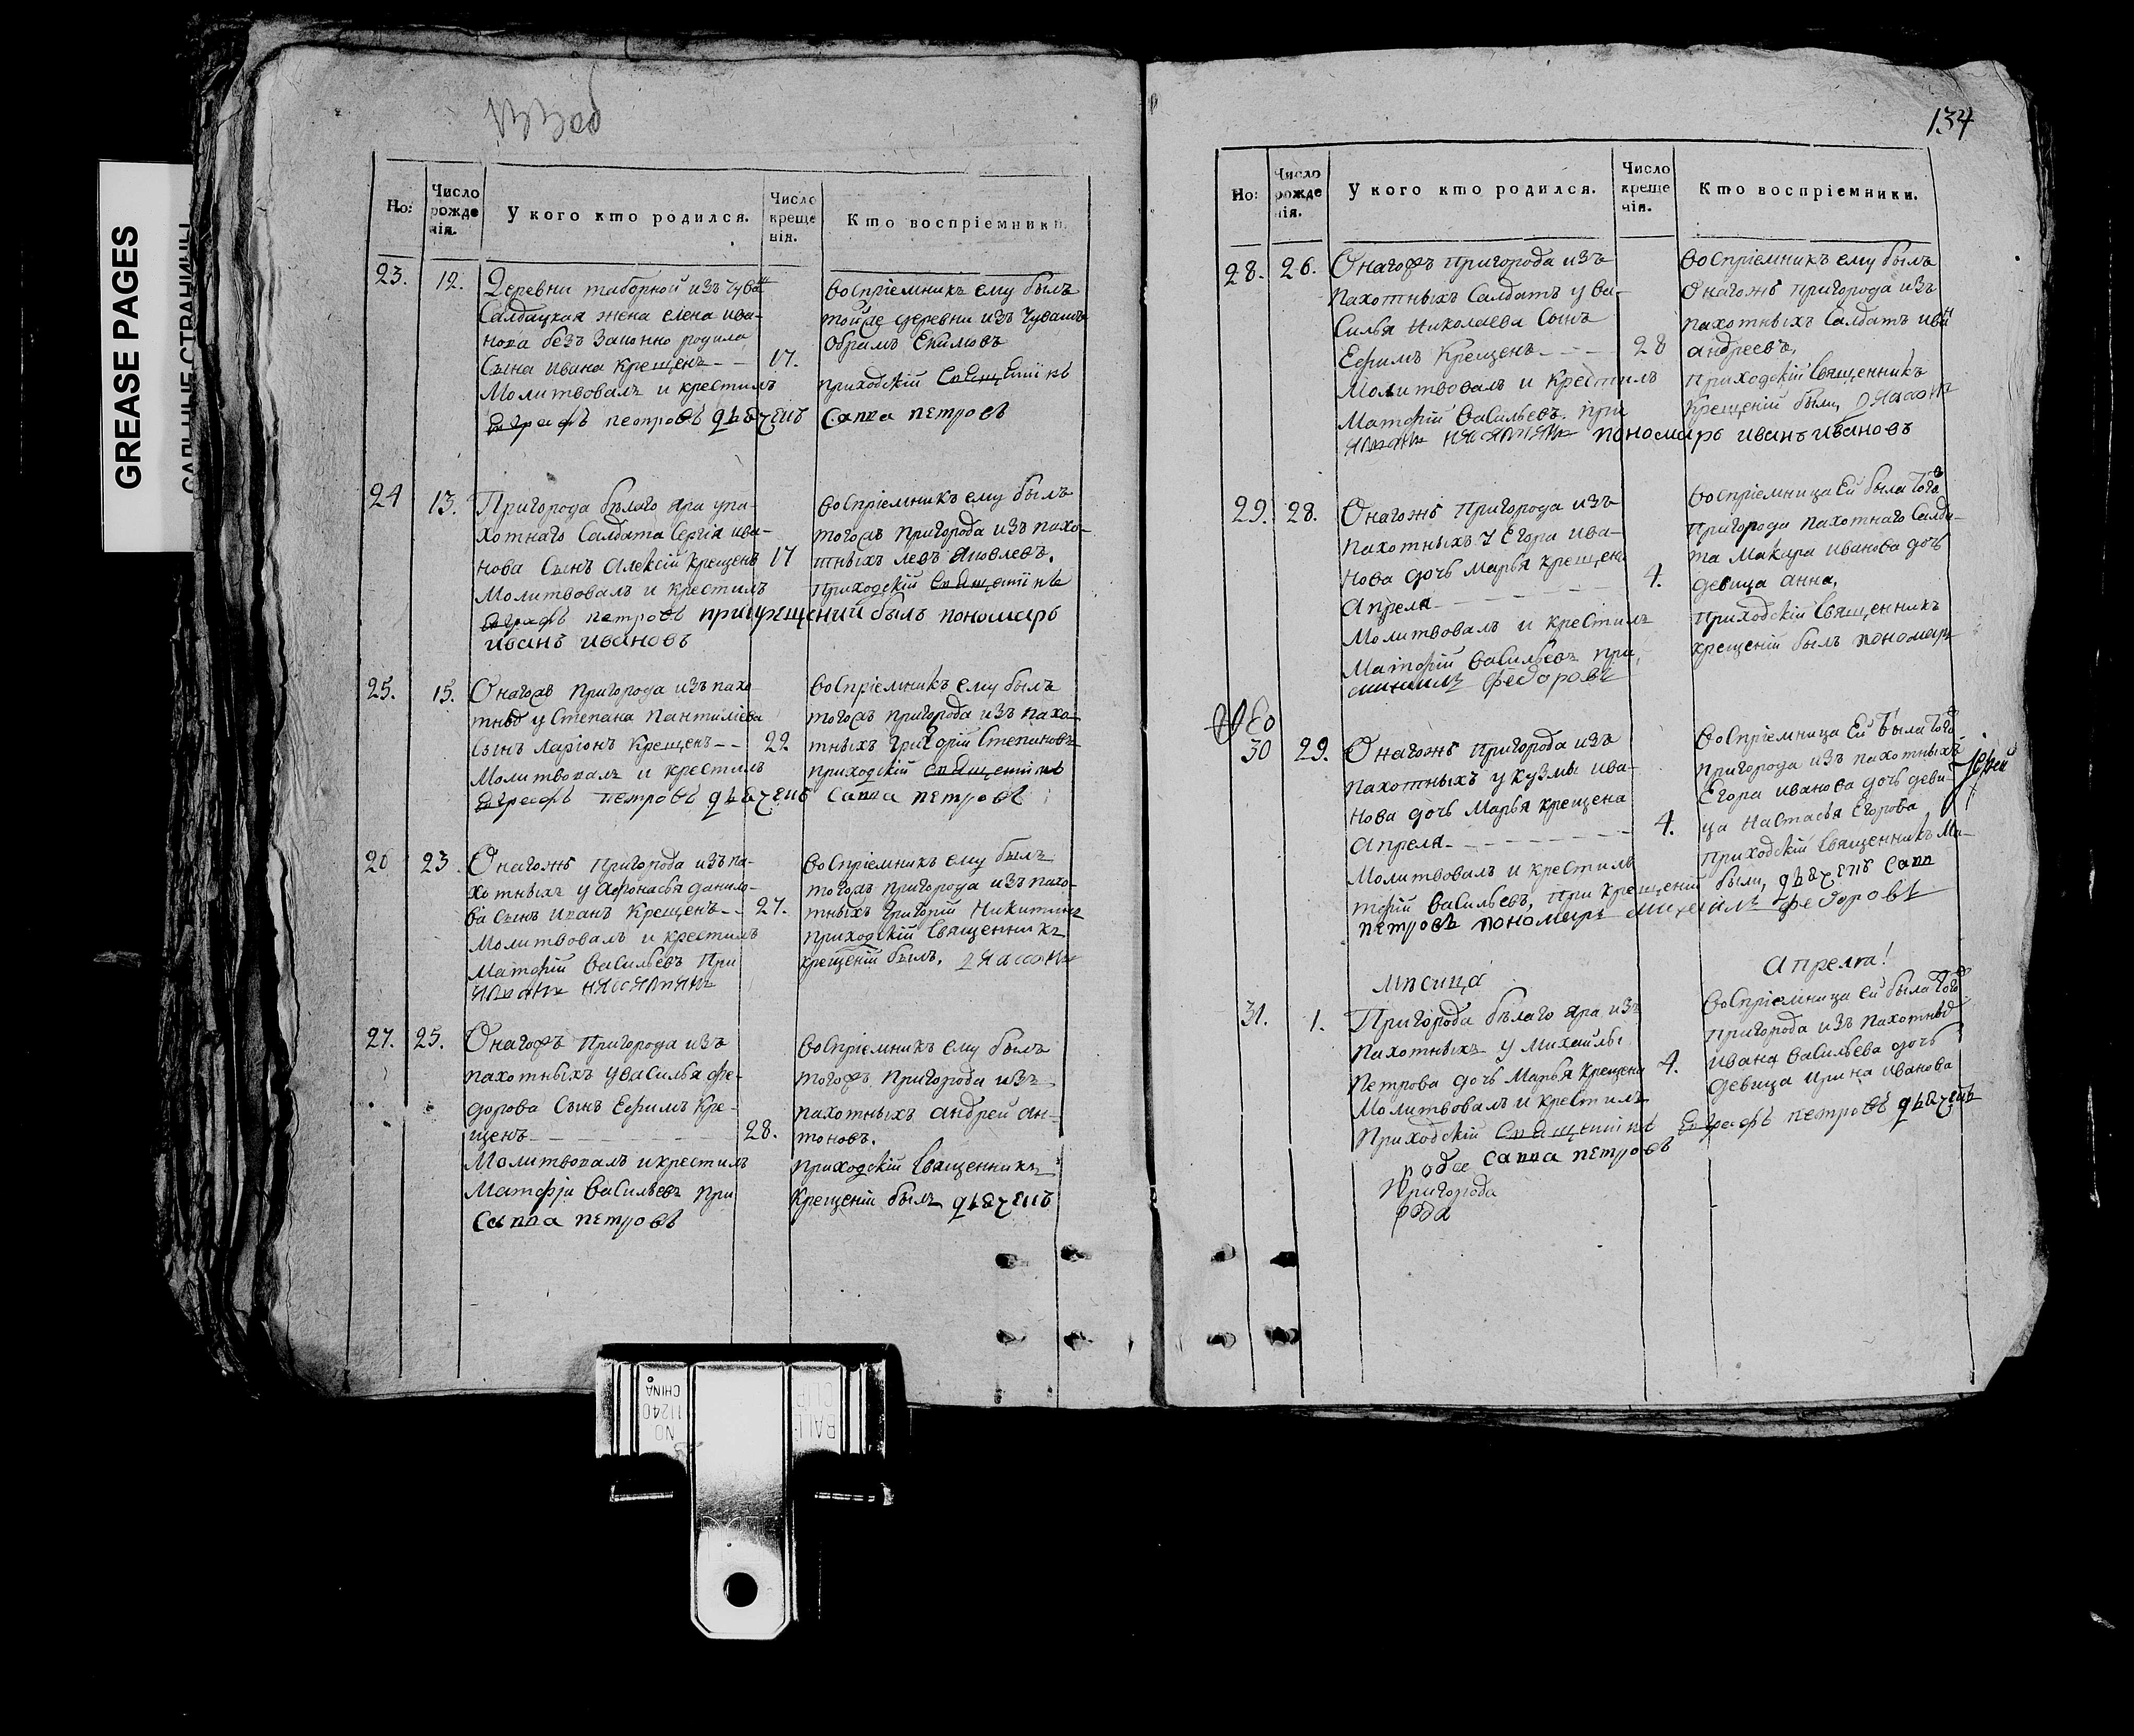 GREASE PAGES
САЛЬНЫЕ СТРАНИЦЫ
Но:
Число рожде нія.
У кого кто родился.
Число креще нія.
Кто воспріемники.
23.
12.
Деревни таборной изъ чуваш
Салдацкая жена елена ива-
нова безъ Законно родила
Сына ивана Крещенъ - - 17.
Молитвовалъ и крестилъ
петровъ
воспріемникъ ему былъ
тойже деревни изъ Чувашъ
Обрамъ Екимовъ
приходскій Священникъ
Савва петровъ
24
13.
Пригорода бѣлаго яра у па-
хотнаго Салдата Сергія ива-
нова Сынъ Алексій Крещенъ 17
Молитвовалъ и крестилъ
петровъ при крещеній былъ пономарь
иванъ ивановъ
воспріемникъ ему былъ
тогожъ пригорода изъ пахо-
тныхъ левъ яковлевъ.
приходскій Священникъ
25.
15.
Онагожъ пригорода изъ пахо-
тных у Степана Пантилiева
Сынъ Ларіонъ Крещенъ - - 22
Молитвовалъ и крестилъ
петровъ
воспріемникъ ему былъ
тогожъ пригорода изъ пахо-
тныхъ григорій Степановъ
приходскій Священникъ
Савва петровъ
26
23.
Онагожъ пригорода изъ па-
хотныхъ у Афонасья данило-
ва сынъ иванъ Крещенъ - - 27.
Молитвовалъ и крестилъ
Матфій васильевъ При
воспріемникъ ему былъ
тогожъ пригорода изъ пахо-
тныхъ григорій Никитинъ
приходскій священникъ
крещеній былъ,
27.
25.
Онагожъ пригорода изъ
пахотныхъ у василья фе-
дорова Сынъ Ефимъ Кре-
щенъ - - - 28.
Молитвовалъ и крестилъ
Матфiи васильевъ при
Савва петровъ
воспріемникъ ему былъ
тогожъ пригорода изъ
пахотныхъ андрей ан-
тоновъ.
приходскій священникъ
Крещеній былъ
134
Но:
Число рожде нія.
У кого кто родился.
Число креще нія.
Кто воспріемники.
28.
26.
Онагожъ пригорода изъ
пахотныхъ Салдатъ у ва-
силья Николаева Сынъ
Ефимъ Крещенъ - - - 28
Молитвовалъ и Крестилъ
Матфій васильевъ при
пономарь иванъ ивановъ
воспріемникъ ему былъ
Онагожъ пригорода изъ
пахотныхъ Салдатъ иван
андреевъ,
приходскій священникъ
Крещеній были,
29.
28.
Онагожъ пригорода изъ
пахотныхъ у Егора ива-
нова дочь Марья крещена
Апреля - - - 4.
Молитвовалъ и крестилъ
Матфій васильевъ при,
михаилъ федоровъ
воспріемница Ей была того
пригорода пахотнаго Салда-
та Макара иванова дочь
девица анна,
приходскій священникъ
крещеній былъ пономарь
30
29.
Онагожъ пригорода изъ
пахотныхъ у кузмы ива-
нова дочь Марья крещена
Апреля - - - 4.
Молитвовалъ и крестилъ
тфій васильевъ, при крещеній были, Савв
петровъ пономарь михаилъ федоровъ
воспріемница Ей была того
пригорода изъ пахотныхъ
Егора иванова дочь деви-
ца настасья Егорова
приходскій священникъ Ма-
мѣсица
Апреля!
31.
1.
Пригорода бѣлаго яра изъ
пахотныхъ у михайлы
петрова дочь Марья Крещена 4.
Молитвовалъ и крестилъ
Приходскій Священникъ петровъ
Савва петровъ
воспріемница ей была того
пригорода изъ пахотных
ивана васильева дочь
девица ирина иванова
Пригорода
рода
NO 11240
CHINA